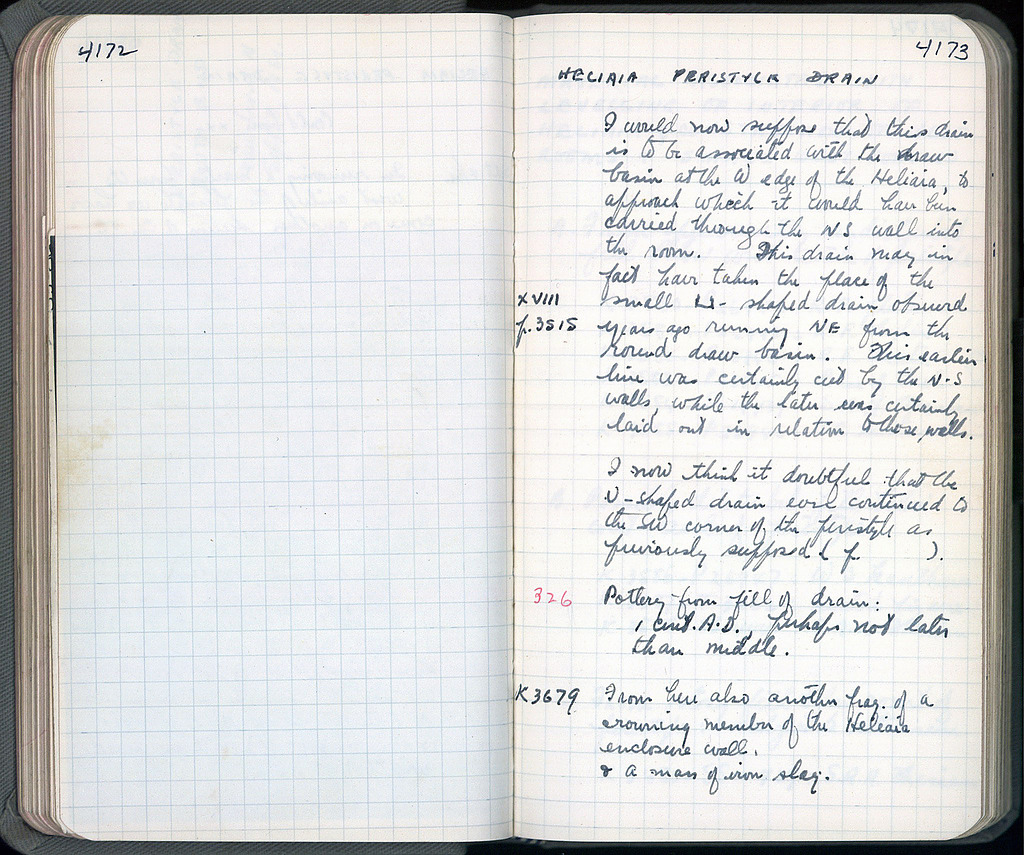 4172
4173
HELIAIA PERISTYLE DRAIN
I would now suppose that this drain
is to be associated with the draw
basin at the W edge of the Heliaia, to
approach which it would have been
carried through the NS wall into
the room. This drain may in
fact have taken the place of the
XVIII small ⊔-shaped drain observed
p.3515 years ago running NE from the
round draw basin. This earlier
line was certainly cut by the N-S
walls, while the later was certainly
laid out in relation to those walls.
I now think it doubtful that the
U-shaped drain ever continued to
the SW corner of the peristyle as
previously supposed ( p. ).
326 Pottery from fill of drain:
1 cent. A.D., perhaps not later
than middle.
K 3679 From here also another frag. of a
crowning member of the Heliaia
enclosure wall.
& a mass of iron slag.